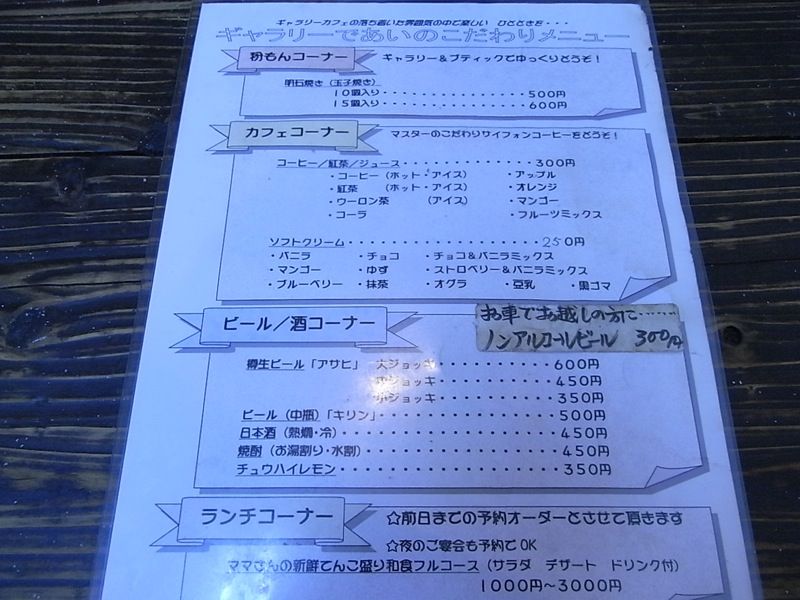 ギャラリーカフェの落ち着いた雰囲気の中で楽しい ひとときを・・・
ギャラリーであいのこだわりメニュー
粉もんコーナー ギャラリー&ブティックでゆっくりどうぞ!
明石焼き(玉子焼き)
10個入り・・・・・・・・・・・・・・500円
15個入り・・・・・・・・・・・・・・600円
カフェコーナー マスターのこだわりサイフォンコーヒーをどうぞ!
コーヒー/紅茶/ジュース・・・・・・・・・・・・・300円
・コーヒー(ホット・アイス) ・アップル
・紅茶 (ホット・アイス) ・オレンジ
・ウーロン茶 (アイス) ・マンゴー
・コーラ ・フルーツミックス
ソフトクリーム・・・・・・・・・・・・・・・・・・・250円
・バニラ ・チョコ ・チョコ&バニラミックス
・マンゴー ・ゆず ・ストロベリー&バニラミックス
・ブルーベリー ・抹茶 ・オグラ ・豆乳 ・黒ゴマ
ビール/酒コーナー
お車でお越しの方に……
ノンアルコールビール 300円
樽生ビール「アサヒ」 大ジョッキ・・・・・・・・・・・600円
中ジョッキ・・・・・・・・・・・450円
小ジョッキ・・・・・・・・・・・350円
ビール(中瓶)「キリン」・・・・・・・・・・・・・・・・500円
日本酒(熱燗・冷)・・・・・・・・・・・・・・・・・・・450円
焼酎(お湯割り・水割)・・・・・・・・・・・・・・・・・450円
チュウハイレモン・・・・・・・・・・・・・・・・・・・350円
ランチコーナー ☆前日までの予約オーダーとさせて頂きます
☆夜のご宴会も予約でOK
ママさんの新鮮てんこ盛り和食フルコース(サラダ デザート ドリンク付)
1000円~3000円